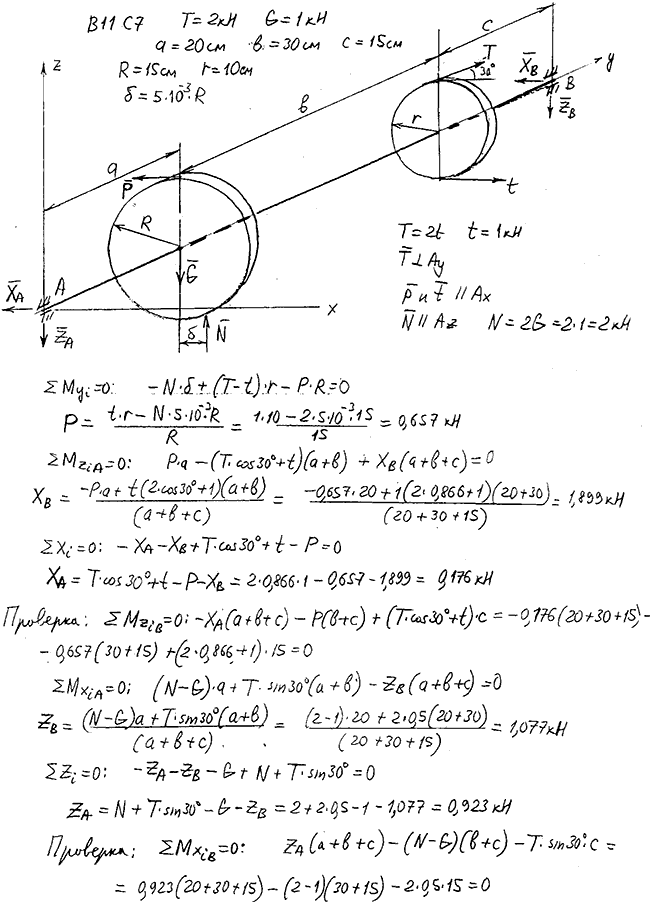 В11 С7 T=2кН G=1кН
a=20см в=30см c=15см
R=15см r=10см
δ=5·10⁻³·R
z
c
T̄
30°
X̄_B
B
y
Z̄_B
в
r
t
a
P̄
R
Ḡ
X̄_A
A
Z̄_A
x
δ
N̄
T=2t t=1кН
T̄⊥Ay
P̄ и t̄ ∥Ax
N̄∥Az N=2G=2·1=2кН
ΣMyᵢ=0: -N·δ+(T-t)·r-P·R=0
P= (t·r-N·5·10⁻³R)/R = (1·10-2·5·10⁻³·15)/15 = 0,657 кН
ΣMzᵢA=0: P·a-(T·cos30°+t)(a+в)+X_B(a+в+c)=0
X_B= (-P·a+t(2·cos30°+1)(a+в))/(a+в+c) = (-0,657·20+1(2·0,866+1)(20+30))/(20+30+15) = 1,899кН
ΣXᵢ=0: -X_A-X_B+T·cos30°+t-P=0
X_A=T·cos30°+t-P-X_B=2·0,866·1-0,657-1,899= 0,176 кН
Проверка: ΣMzᵢB=0: -X_A(a+в+c)-P(в+c)+(T·cos30°+t)·c=-0,176(20+30+15)-
-0,657(30+15)+(2·0,866+1)·15=0
ΣMxᵢA=0; (N-G)·a+T·sin30°(a+в)-Z_B(a+в+c)=0
Z_B= ((N-G)a+T·sin30°(a+в))/(a+в+c) = ((2-1)·20+2·0,5(20+30))/(20+30+15) = 1,077кН
ΣZᵢ=0: -Z_A-Z_B-G+N+T·sin30°=0
Z_A=N+T·sin30°-G-Z_B=2+2·0,5-1-1,077=0,923 кН
Проверка; ΣMxᵢB=0: Z_A(a+в+c)-(N-G)(в+c)-T·sin30°·c=
=0,923(20+30+15)-(2-1)(30+15)-2·0,5·15=0